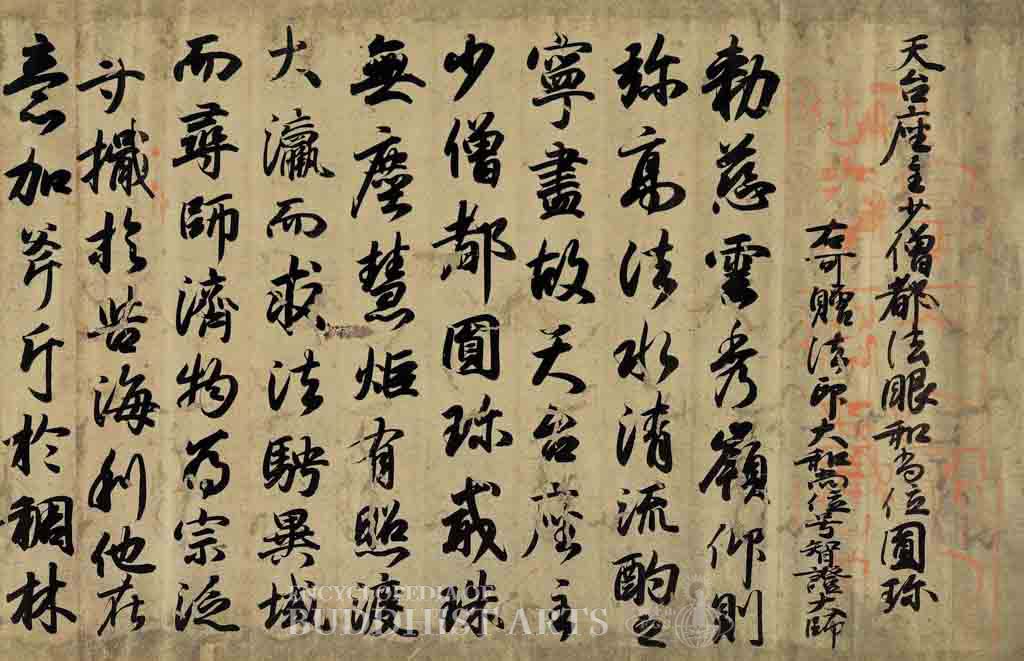 天台座主少僧都法眼和尚位圓珎
右可贈法印大和尚位号智證大師
勅慈雲秀嶺仰則
弥高法水清流酌之
寧盡故天台座主
少僧都圓珎戒珠
無塵慧炬有照渡
大瀛而求法騁異域
而尋師濟物為宗泛
寸檝於苦海利他在
意加斧斤於稠林
ENCYCLOPEDIA OF
BUDDHIST ARTS